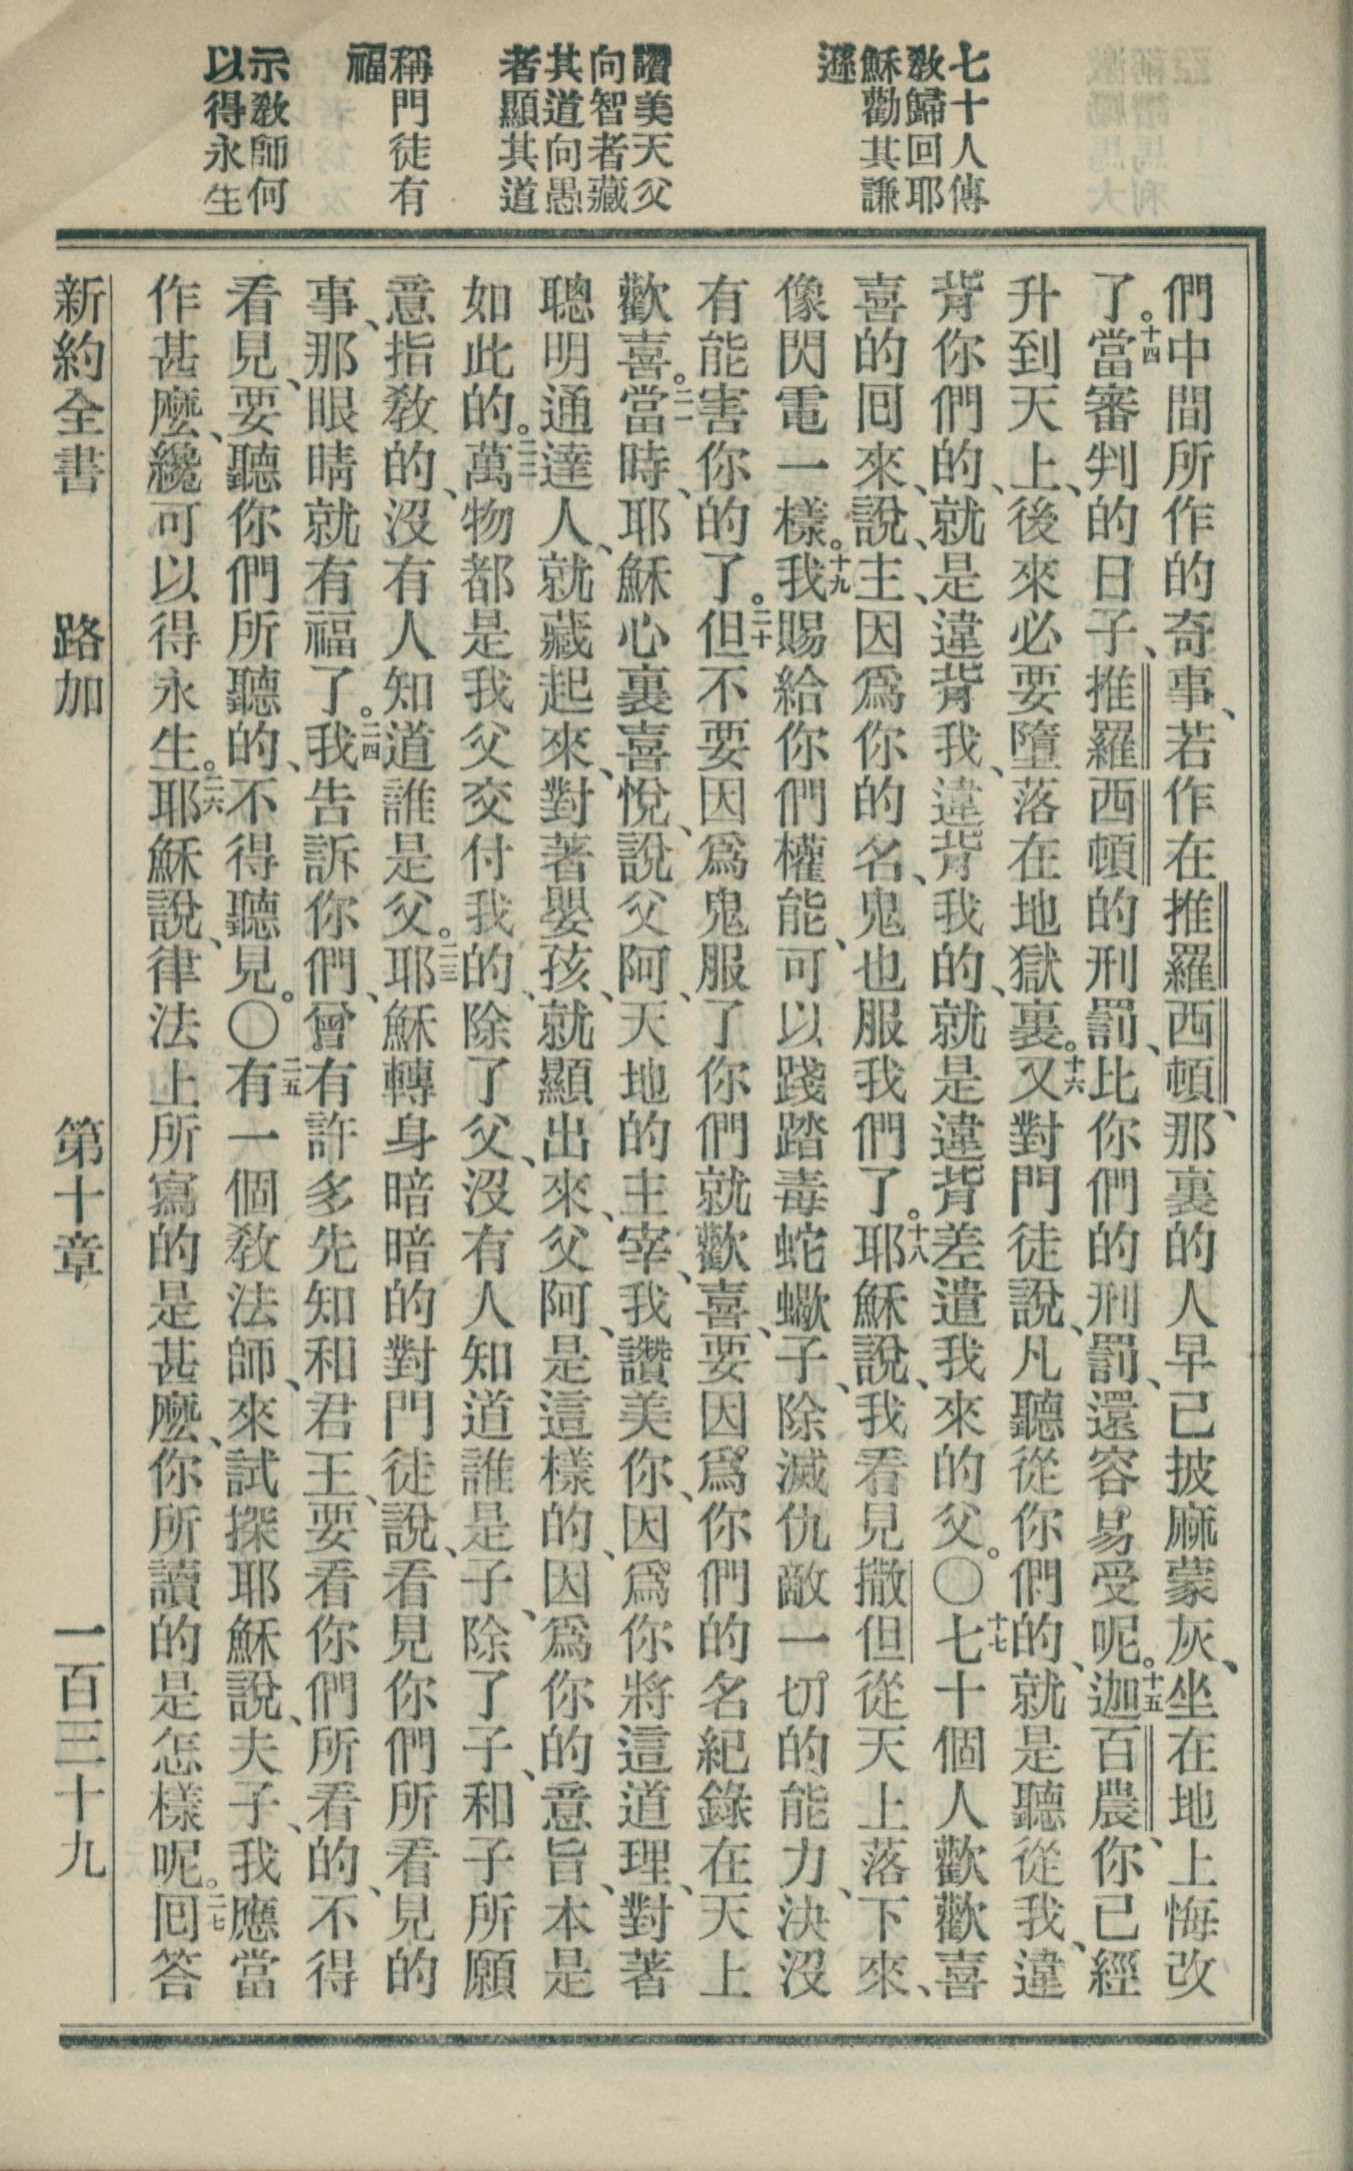 七十人傳
教歸回耶
穌勸其謙
遜
讚美天父
向智者藏
其道向愚
者顯其道
稱門徒有
福
示教師何
以得永生
們中間所作的奇事、若作在推羅西頓、那裏的人早已披麻蒙灰、坐在地上悔改
了。十四當審判的日子、推羅西頓的刑罰、比你們的刑罰、還容易受呢。十五迦百農、你已經
升到天上、後來必要墮落在地獄裏。十六又對門徒說、凡聽從你們的、就是聽從我、違
背你們的、就是違背我、違背我的、就是違背差遣我來的父。〇十七七十個人歡歡喜
喜的囘來、說、主、因爲你的名、鬼也服我們了。十八耶穌說、我看見撒但從天上落下來、
像閃電一樣。十九我賜給你們權能、可以踐踏毒蛇蠍子、除滅仇敵一切的能力、決沒
有能害你的了。二十但不要因爲鬼服了你們就歡喜、要因爲你們的名紀錄在天上
歡喜。二一當時、耶穌心裏喜悅、說、父阿、天地的主宰、我讚美你、因爲你將這道理、對著
聰明通達人、就藏起來、對著嬰孩、就顯出來、父阿、是這樣的、因爲你的意旨、本是
如此的。二二萬物都是我父交付我的、除了父、沒有人知道誰是子、除了子、和子所願
意指敎的、沒有人知道誰是父。二三耶穌轉身暗暗的對門徒說、看見你們所看見的
事、那眼睛就有福了。二四我告訴你們、曾有許多先知和君王、要看你們所看的、不得
看見、要聽你們所聽的、不得聽見。〇二五有一個敎法師、來試探耶穌說、夫子、我應當
作甚麼、纔可以得永生。二六耶穌說、律法上所寫的是甚麼、你所讀的是怎樣呢。二七囘答
新約全書 路加 第十章 一百三十九